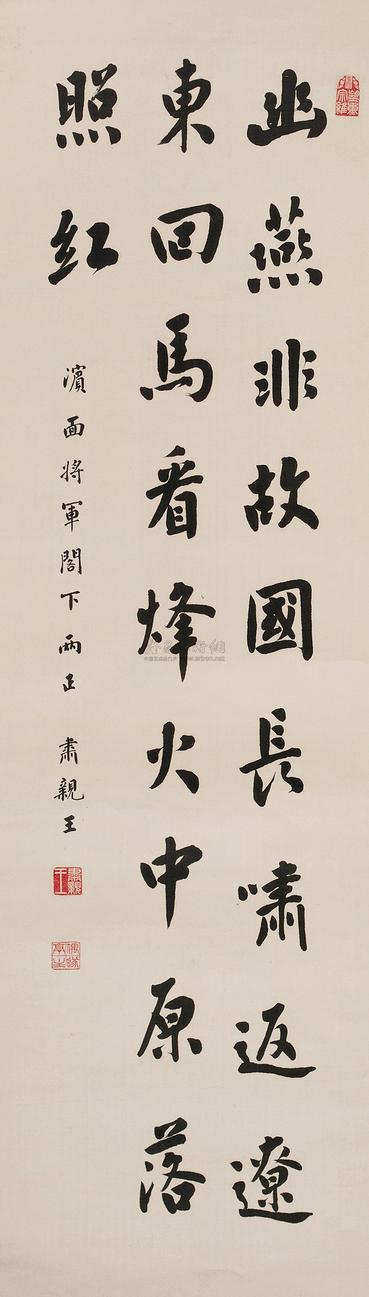 幽燕非故國長嘯返遼
東回馬看烽火中原落
照紅
濱面將軍閣下兩正 肅親王
肅親王